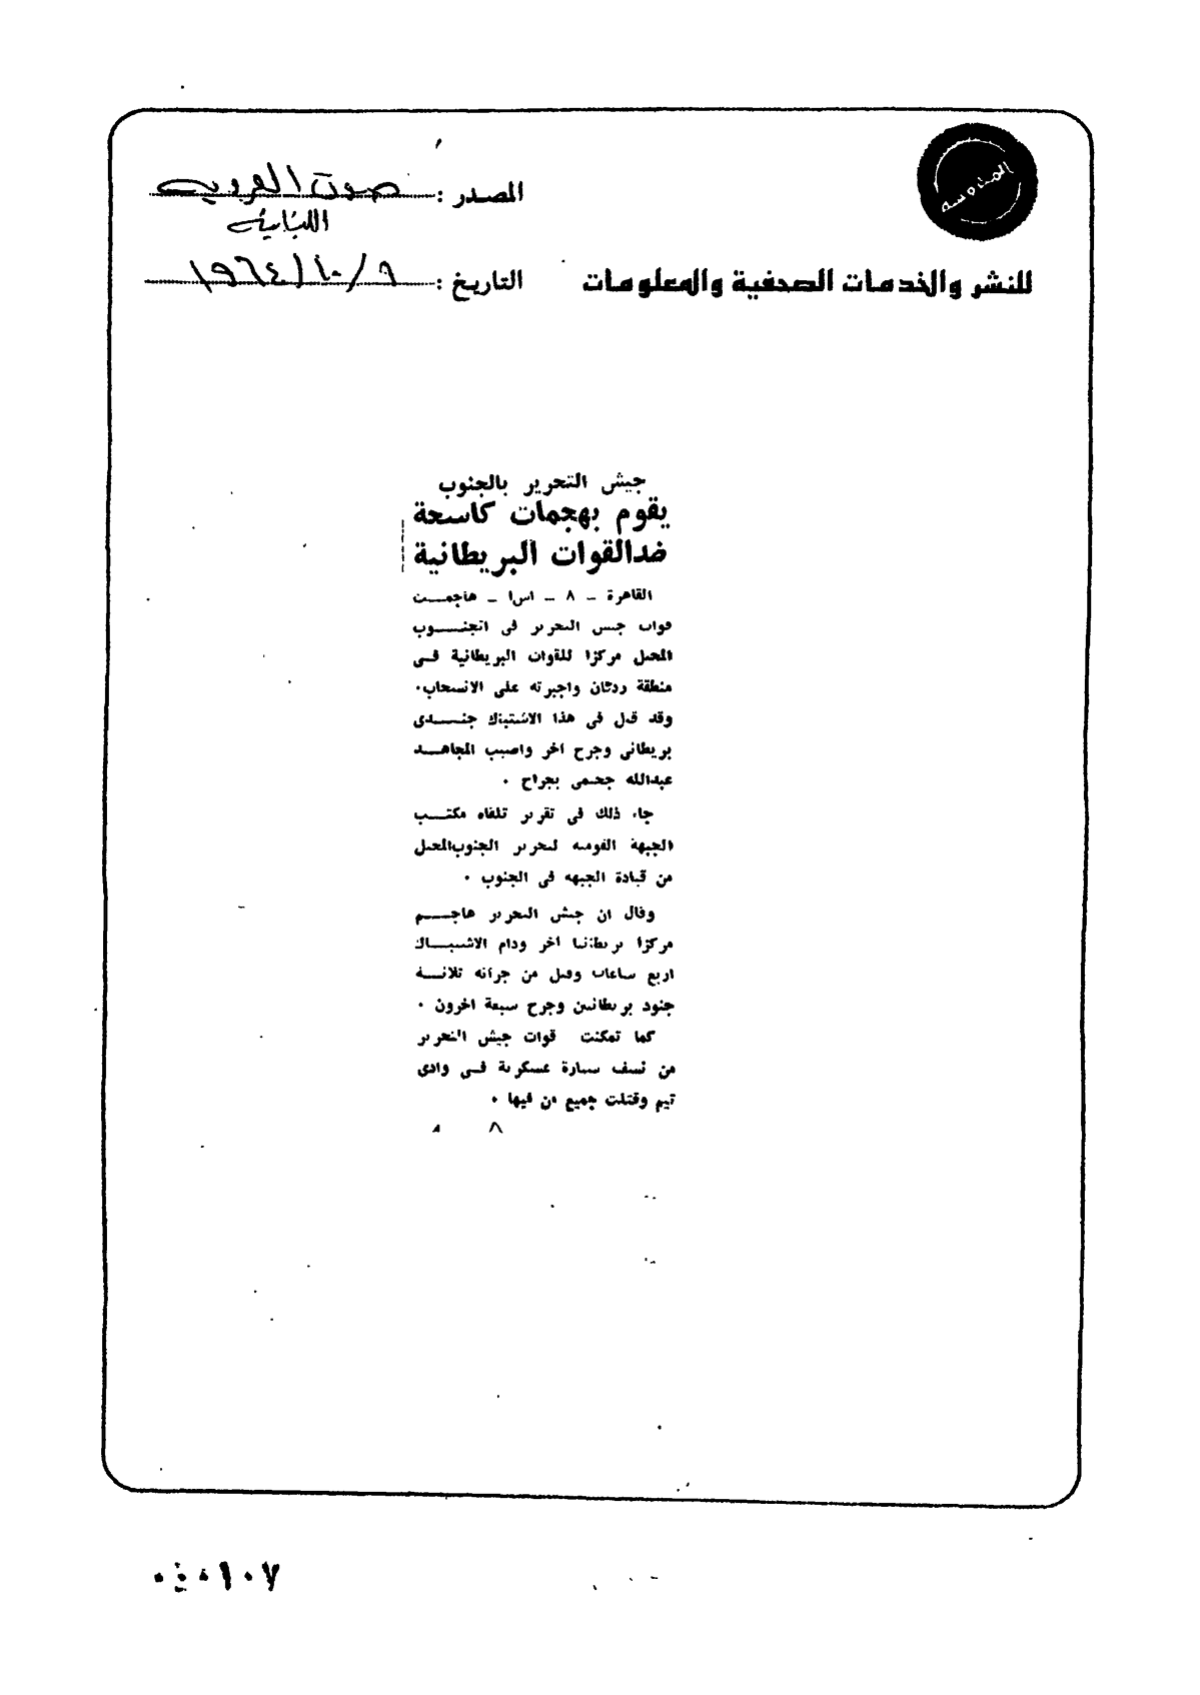 المدوسة
المصدر : صوت العروبه
اللبنانية
للنشر والخدمات الصحفية والمعلومات
التاريخ : ٩/١٠/١٩٦٤
جيش التحرير بالجنوب
يقوم بهجمات كاسحة
ضدالقوات البريطانية
القاهرة - ٨ - اسا - هاجمت
قوات جيش التحرير فى الجنوب
المحتل مركزا للقوات البريطانية فى
منطقة ردفان واجبرته على الانسحاب.
وقد قتل فى هذا الاشتباك جندى
بريطانى وجرح اخر واصيب المجاهد
عبدالله جحمى بجراح .
جاء ذلك فى تقرير تلقاه مكتب
الجبهة القومية لتحرير الجنوب المحتل
من قيادة الجبهه فى الجنوب .
وقال ان جيش التحرير هاجم
مركزا بريطانيا اخر ودام الاشتباك
اربع ساعات وقتل من جرائه ثلاثة
جنود بريطانيين وجرح سبعة اخرون .
كما تمكنت قوات جيش التحرير
من نسف سيارة عسكرية فى وادى
تيم وقتلت جميع من فيها .
٨